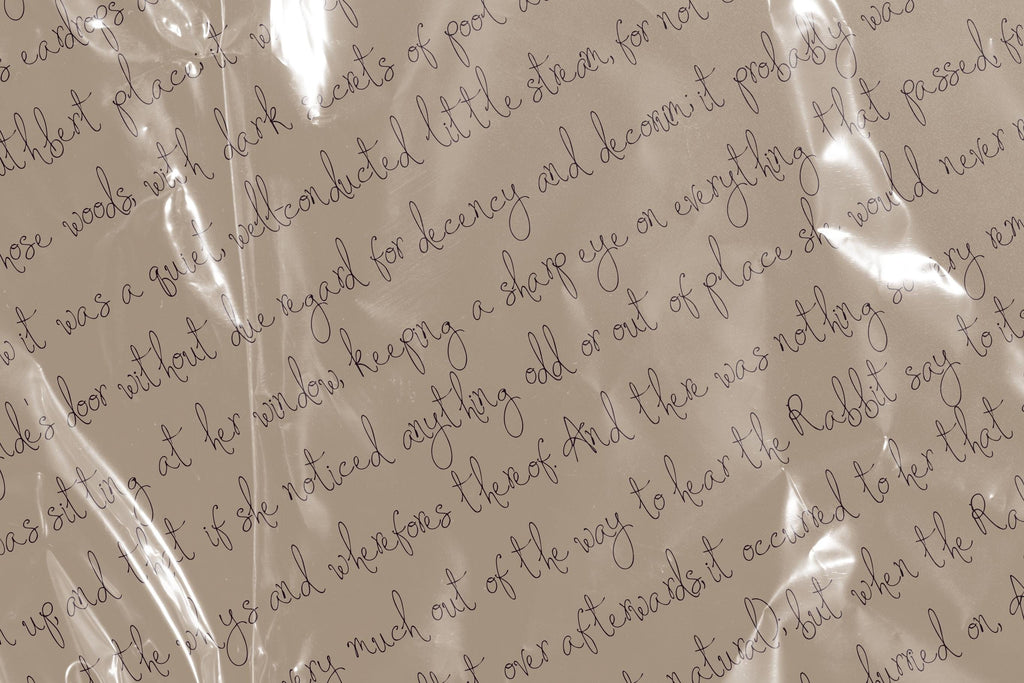 eardrops
place; it
woods, with dark secrets of pool
it was a quiet, wellconducted little stream, for not
door without due regard for decency and decorum; it probably was
was sitting at her window, keeping a sharp eye on everything that passed, fr
up and that if she noticed anything odd or out of place she would never
the whys and wherefores thereof. And there was nothing so very rem
very much out of the way to hear the Rabbit say to its
it over afterwards, it occurred to her that
natural); but when the Ra
hurried on, A